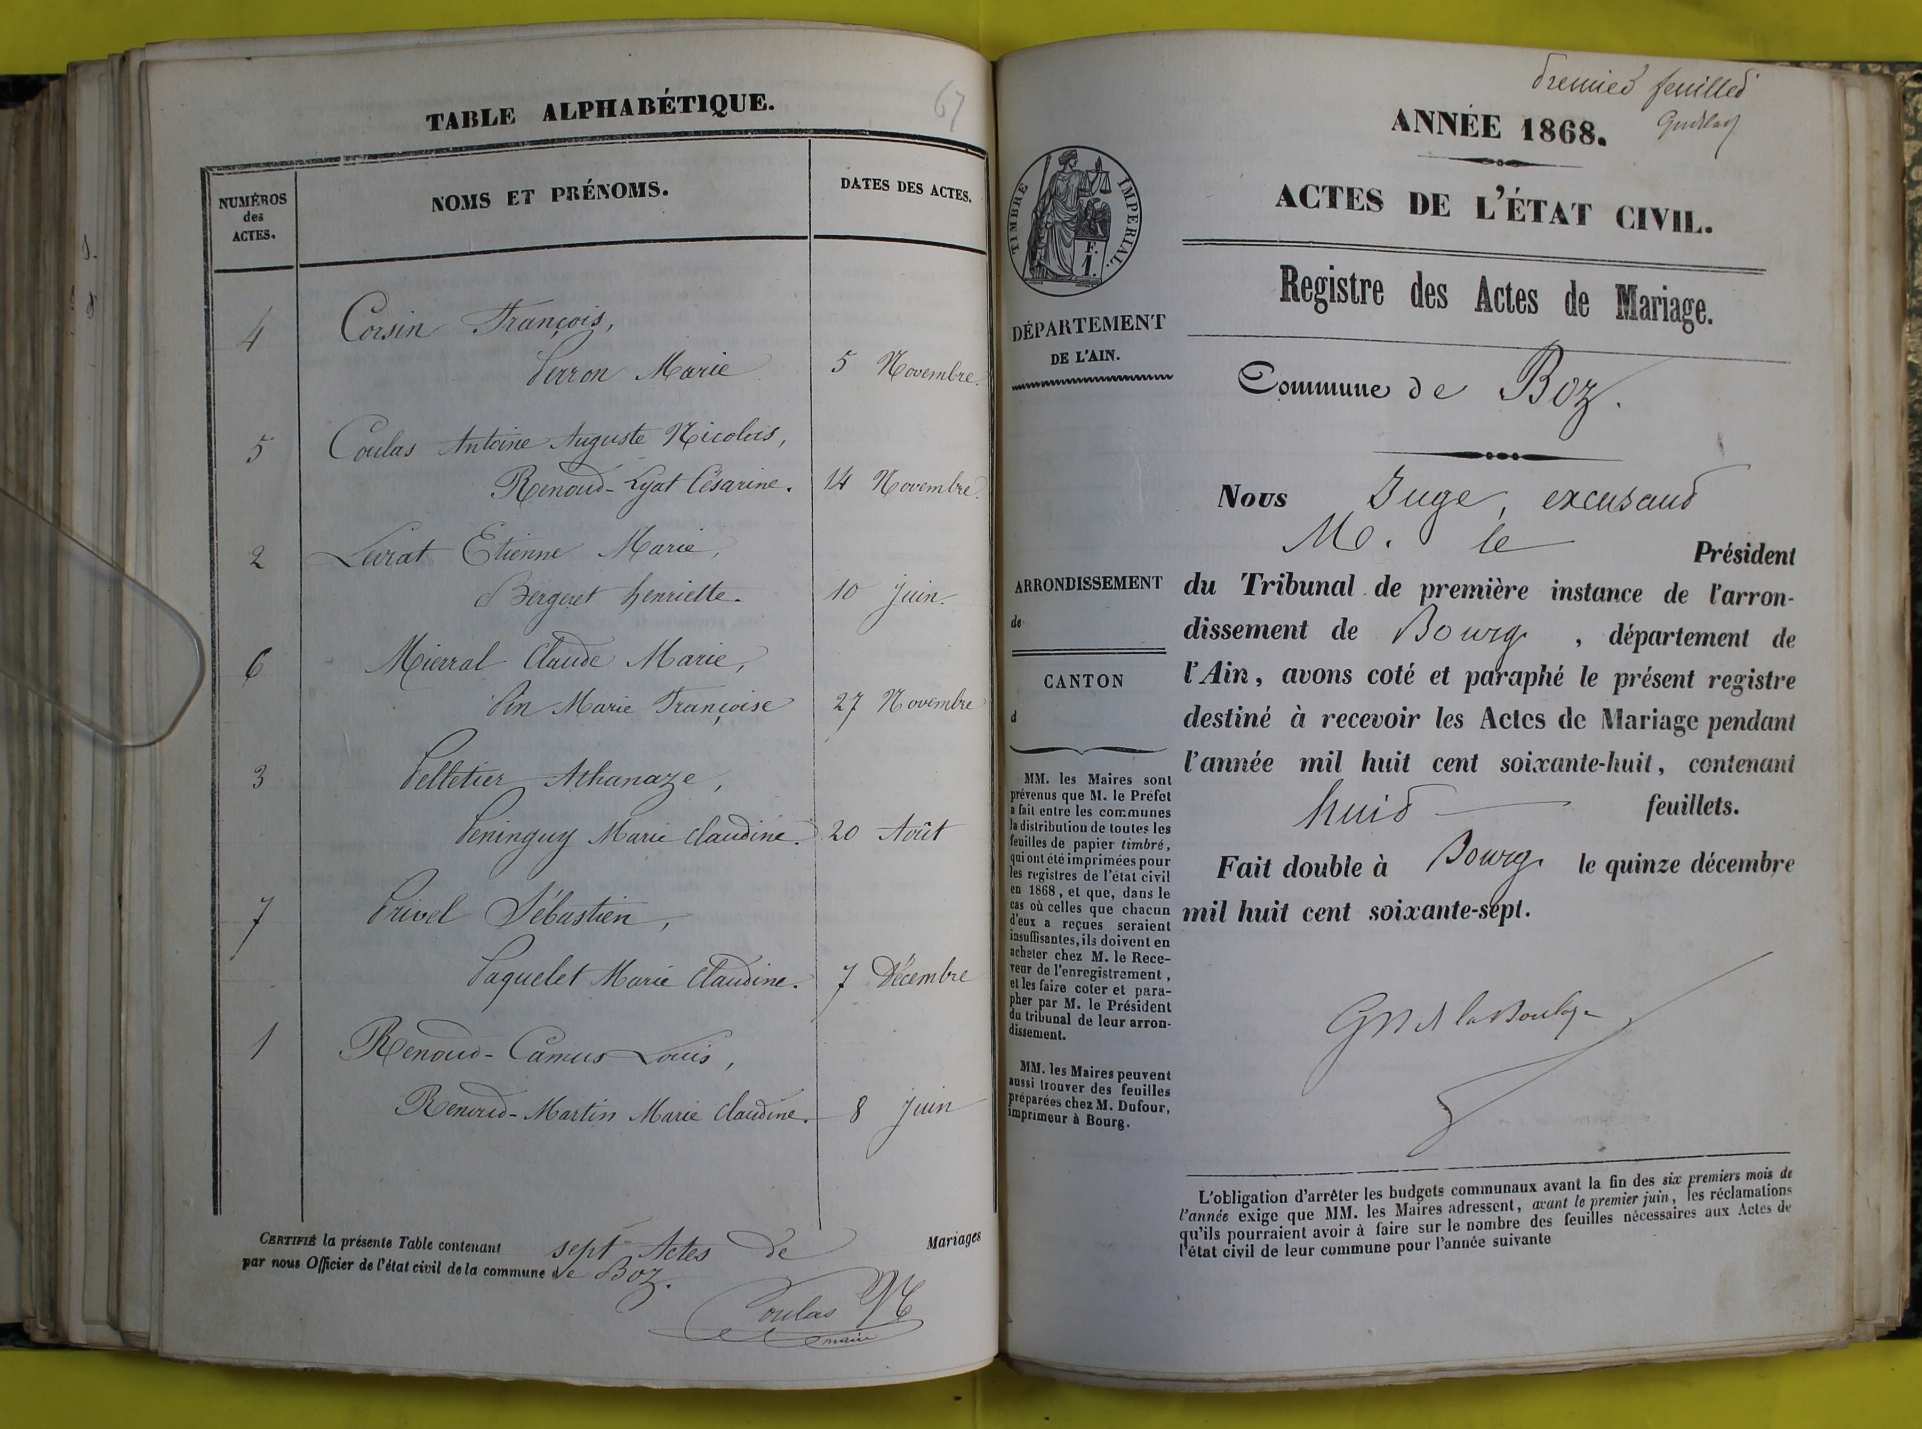 TABLE ALPHABÉTIQUE.
67
NUMÉROS
des
ACTES.
NOMS ET PRÉNOMS.
DATES DES ACTES.
4 Corsin François,
Perron Marie 5 Novembre.
5 Coulas Antoine Auguste Nicolas,
Renoud-Lyat Césarine. 14 Novembre.
2 Leirat Etienne Marie,
Bergeret henriette. 10 juin.
6 Mierral Claude Marie,
Pin Marie Françoise 27 Novembre
3 Pelletier Athanaze,
Peninguy Marie Claudine. 20 Août
7 Privel Sébastien,
Paquelet Marie Claudine. 7 Décembre
1 Renoud-Camus Louis,
Renoud-Martin Marie Claudine. 8 juin
CERTIFIÉ la présente Table contenant sept Actes de Mariages
par nous Officier de l'état civil de la commune de Boz.
Coulas
maire
premier feuillet
ANNÉE 1868.
ACTES DE L'ÉTAT CIVIL.
Registre des Actes de Mariage.
TIMBRE IMPÉRIAL.
F.
1.
DÉPARTEMENT
DE L'AIN.
Commune de Boz.
Nous Juge, excusant
M. le Président
du Tribunal de première instance de l'arron-
dissement de Bourg, département de
l'Ain, avons coté et paraphé le présent registre
destiné à recevoir les Actes de Mariage pendant
l'année mil huit cent soixante-huit, contenant
huit feuillets.
Fait double à Bourg le quinze décembre
mil huit cent soixante-sept.
ARRONDISSEMENT
de
CANTON
d
MM. les Maires sont
prévenus que M. le Préfet
a fait entre les communes
la distribution de toutes les
feuilles de papier timbré,
qui ont été imprimées pour
les registres de l'état civil
en 1868, et que, dans le
cas où celles que chacun
d'eux a reçues seraient
insuffisantes, ils doivent en
acheter chez M. le Rece-
veur de l'enregistrement,
et les faire coter et para-
pher par M. le Président
du tribunal de leur arron-
dissement.
MM. les Maires peuvent
aussi trouver des feuilles
préparées chez M. Dufour,
imprimeur à Bourg.
L'obligation d'arrêter les budgets communaux avant la fin des six premiers mois de
l'année exige que MM. les Maires adressent, avant le premier juin, les réclamations
qu'ils pourraient avoir à faire sur le nombre des feuilles nécessaires aux Actes de
l'état civil de leur commune pour l'année suivante